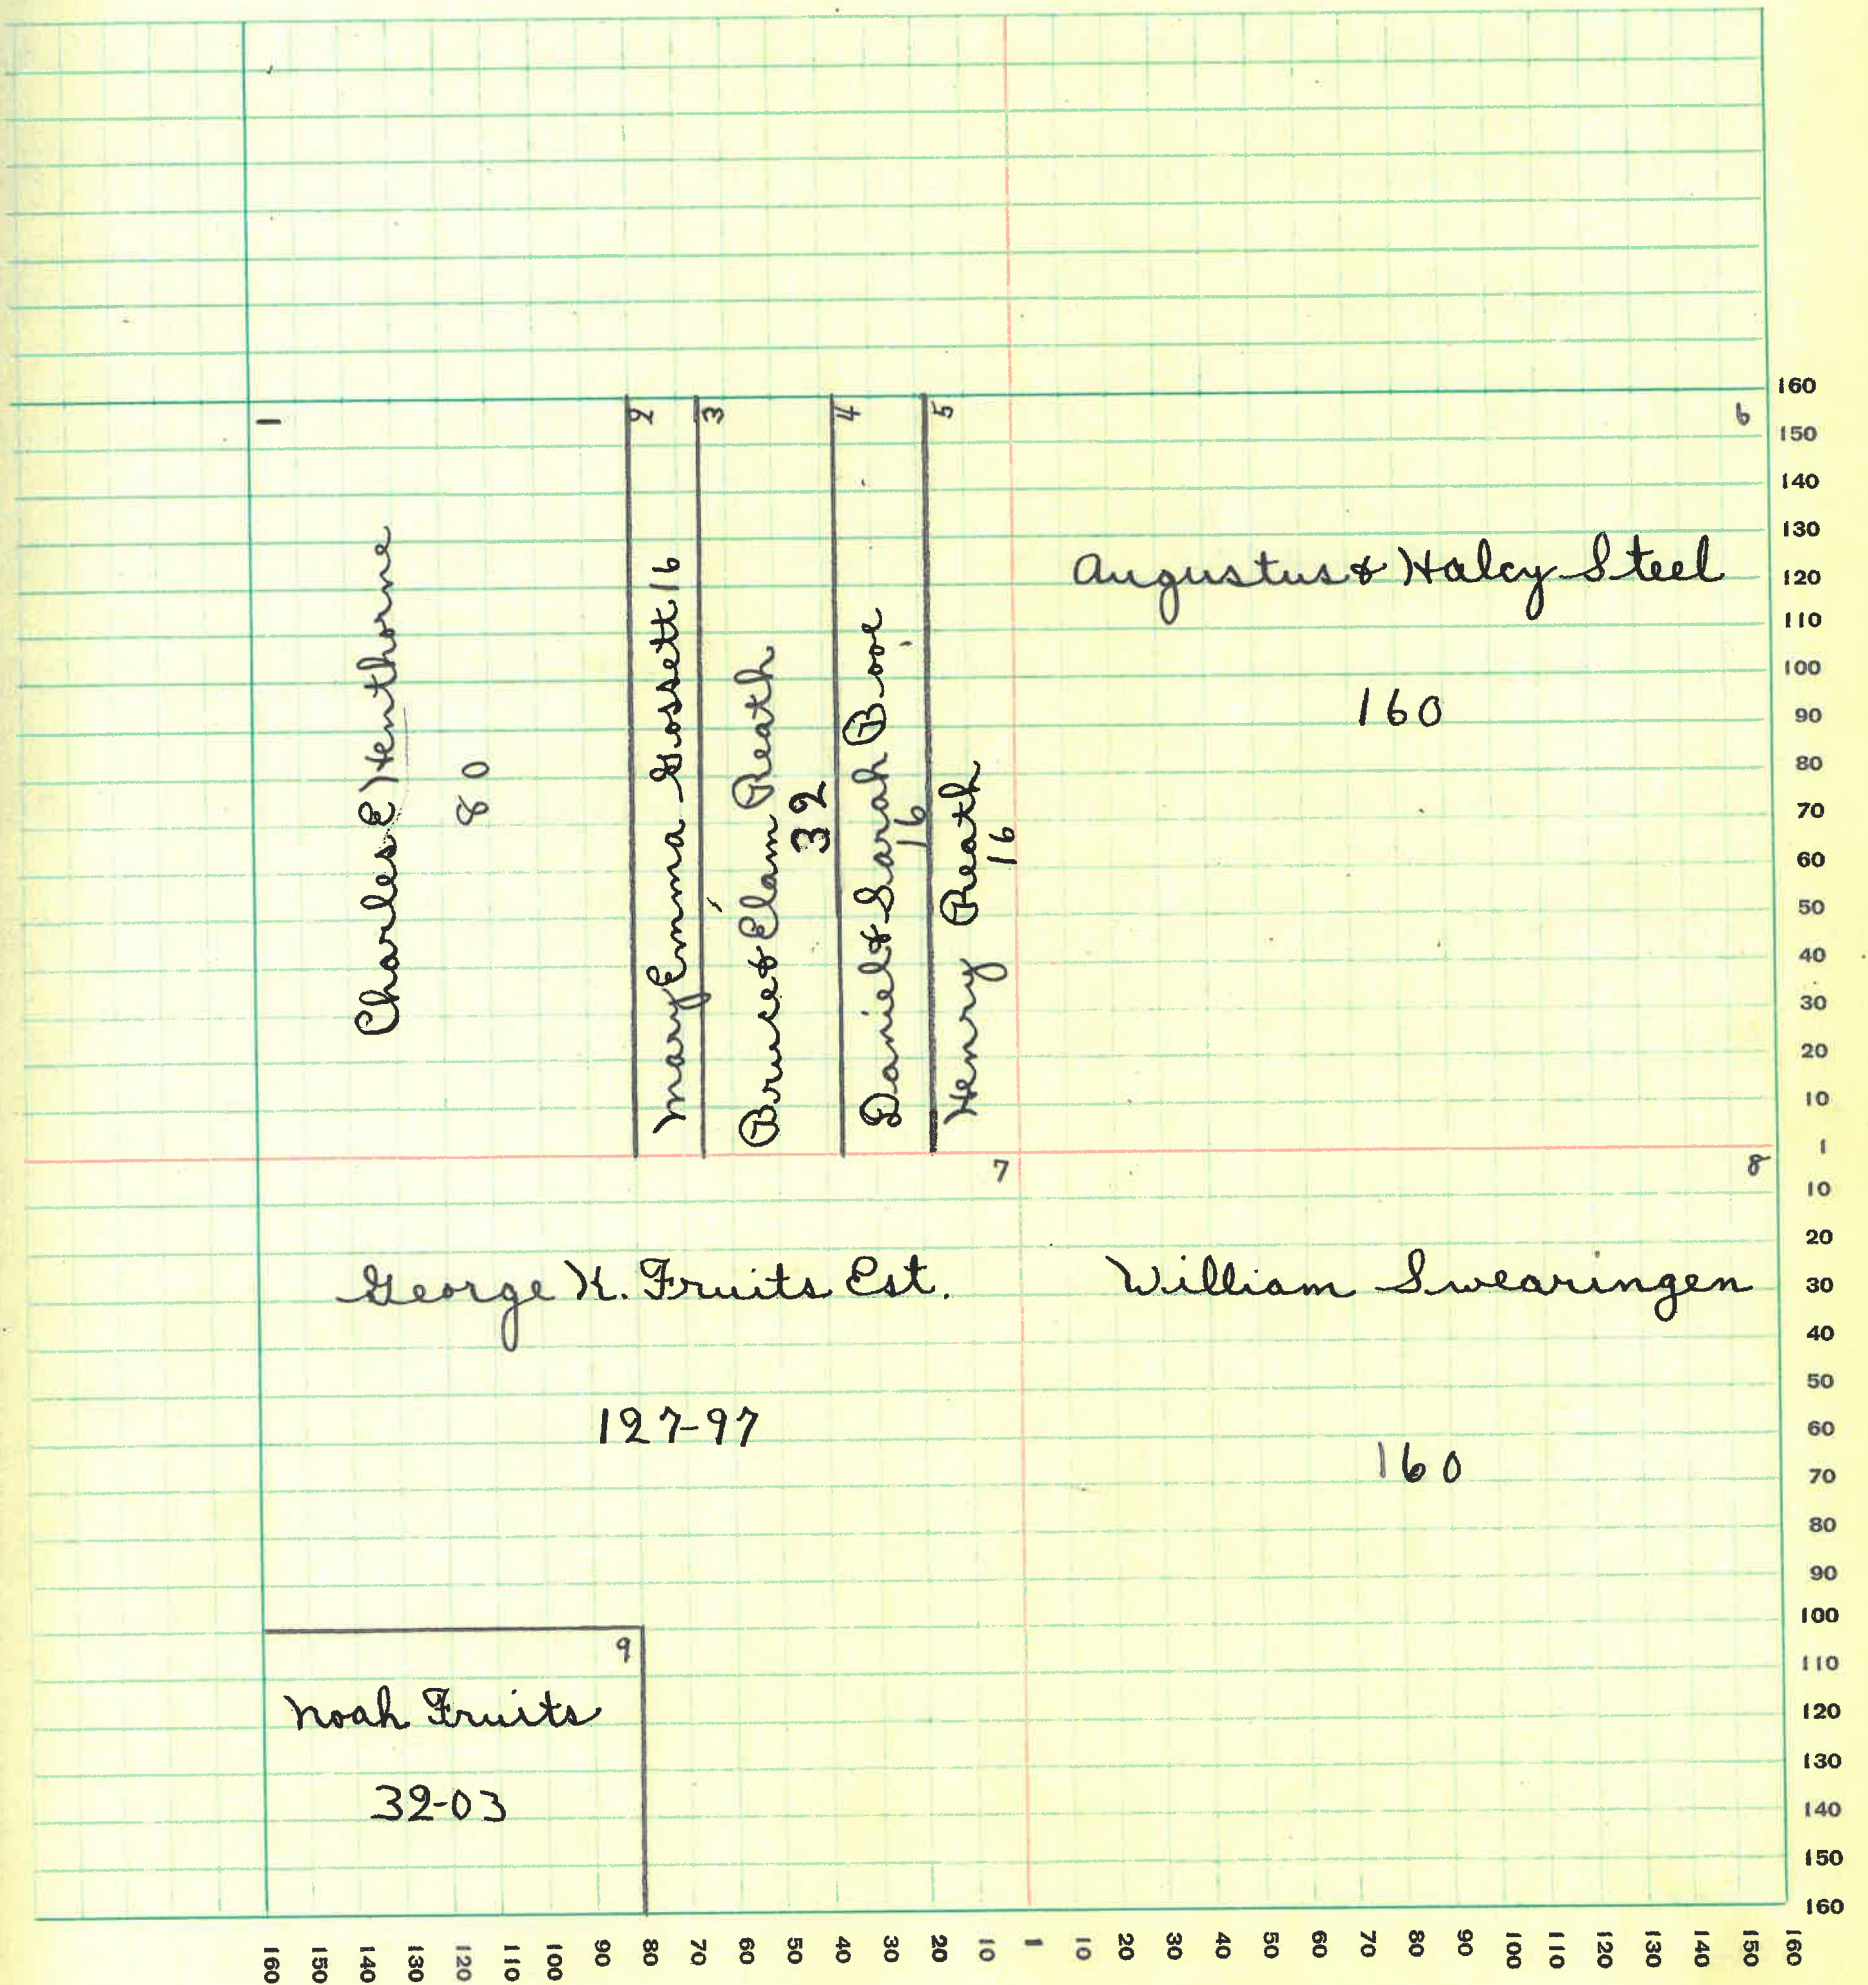 1
Charles E Henthorne
80
2
Mary Emma Gossett 16
3
Bruce & Elam Reath
32
4
Daniel & Sarah Booe
16
5
Henry Reath
16
6
Augustus & Halcy Steel
160
7
George K. Fruits Est.
127-97
8
William Swearingen
160
9
Noah Fruits
32-03
160
150
140
130
120
110
100
90
80
70
60
50
40
30
20
10
1
10
20
30
40
50
60
70
80
90
100
110
120
130
140
150
160
160 150 140 130 120 110 100 90 80 70 60 50 40 30 20 10 1 10 20 30 40 50 60 70 80 90 100 110 120 130 140 150 160